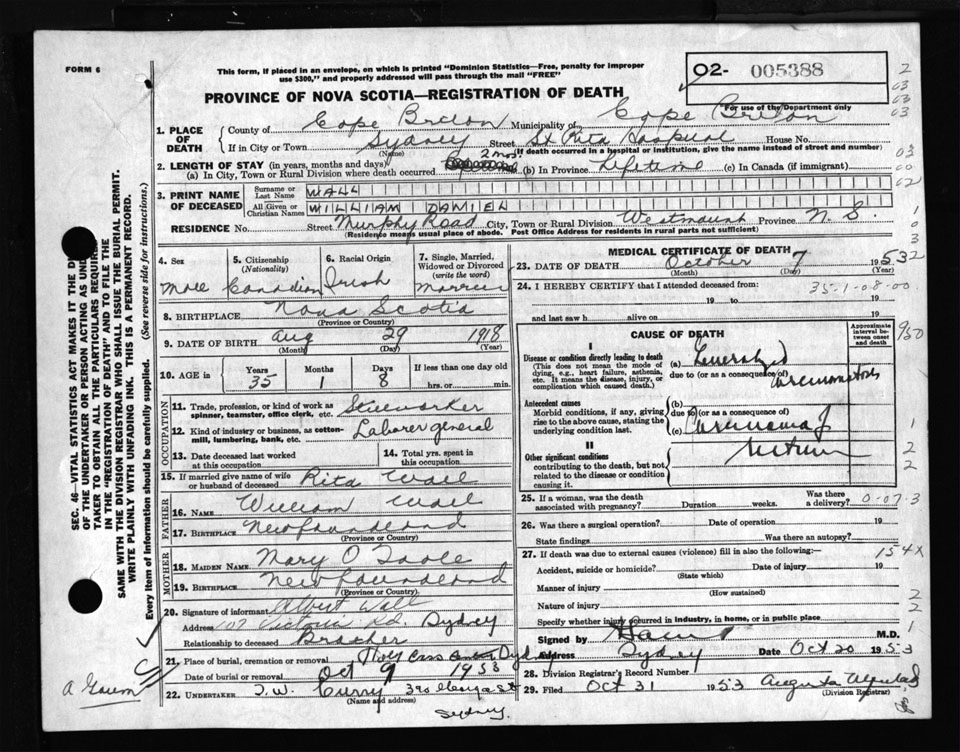 FORM 6
This form, if placed in an envelope, on which is printed "Dominion Statistics—Free, penalty for improper
use $300," and properly addressed will pass through the mail "FREE"
O2- 005388
For use of the Department only
PROVINCE OF NOVA SCOTIA—REGISTRATION OF DEATH
1. PLACE OF DEATH
County of Cape Breton Municipality of Cape Breton
If in City or Town Sydney Street St Rita Hospital House No.
(Name) (If death occurred in a hospital or institution, give the name instead of street and number)
2. LENGTH OF STAY (in years, months and days)
(a) In City, Town or Rural Division where death occurred 2 mos. (b) In Province Lifetime (c) In Canada (if immigrant)
3. PRINT NAME OF DECEASED
Surname or Last Name WALL
All Given or Christian Names WILLIAM DAMIEN
RESIDENCE No. Street Murphy Road City, Town or Rural Division Westmount Province N.S.
(Residence means usual place of abode. Post Office Address for residents in rural parts not sufficient)
4. Sex Male
5. Citizenship (Nationality) Canadian
6. Racial Origin Irish
7. Single, Married, Widowed or Divorced (write the word) Married
8. BIRTHPLACE Nova Scotia
(Province or Country)
9. DATE OF BIRTH Aug 29 1918
(Month) (Day) (Year)
10. AGE in Years 35 Months 1 Days 8 If less than one day old hrs. or min.
OCCUPATION
11. Trade, profession, or kind of work as spinner, teamster, office clerk, etc. Steelworker
12. Kind of industry or business, as cotton-mill, lumbering, bank, etc. Laborer general
13. Date deceased last worked at this occupation
14. Total yrs. spent in this occupation
15. If married give name of wife or husband of deceased Rita Wall
FATHER
16. NAME William Wall
17. BIRTHPLACE Newfoundland
(Province or Country)
MOTHER
18. MAIDEN NAME Mary O Toole
19. BIRTHPLACE Newfoundland
(Province or Country)
20. Signature of informant Albert Wall
Address 107 Victoria Rd. Sydney
Relationship to deceased Brother
21. Place of burial, cremation or removal Holy Cross Sydney
Date of burial or removal Oct 9 1953
22. UNDERTAKER T.W. Curry
(Name and address)
Sydney.
MEDICAL CERTIFICATE OF DEATH
23. DATE OF DEATH October 7 1953
(Month) (Day) (Year)
24. I HEREBY CERTIFY that I attended deceased from:
35-1-08-00
19 to 19
and last saw h alive on 19
CAUSE OF DEATH
Approximate interval between onset and death
I
Disease or condition directly leading to death (a) Generalized
(This does not mean the mode of dying, e.g., heart failure, asthenia, etc. It means the disease, injury, or complication which caused death.)
due to (or as a consequence of) carcinomatosis
Antecedent causes (b)
Morbid conditions, if any, giving rise to the above cause, stating the underlying condition last.
due to (or as a consequence of)
(c) Carcinoma of rectum
II
Other significant conditions
contributing to the death, but not related to the disease or condition causing it.
25. If a woman, was the death associated with pregnancy? Duration weeks. Was there a delivery?
0-07-3
26. Was there a surgical operation? Date of operation 19
State findings Was there an autopsy?
27. If death was due to external causes (violence) fill in also the following:—
154X
Accident, suicide or homicide? Date of injury 19
(State which)
Manner of injury
(How sustained)
Nature of injury
Specify whether injury occurred in industry, in home, or in public place
Signed by M.D.
Address Sydney Date Oct 20 1953
28. Division Registrar's Record Number
29. Filed Oct 31 1953 Augusta
(Division Registrar)
SEC. 46—VITAL STATISTICS ACT MAKES IT THE
OF THE UNDERTAKER OR PERSON ACTING AS
TAKER TO OBTAIN ALL THE PARTICULARS
IN THE "REGISTRATION OF DEATH" AND TO FILE THE
SAME WITH THE DIVISION REGISTRAR WHO SHALL ISSUE THE BURIAL PERMIT.
WRITE PLAINLY WITH UNFADING INK. THIS IS A PERMANENT RECORD.
Every item of Information should be carefully supplied. (See reverse side for instructions.)